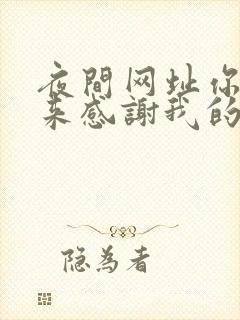 夜間网址你
来感謝我的
隐為者